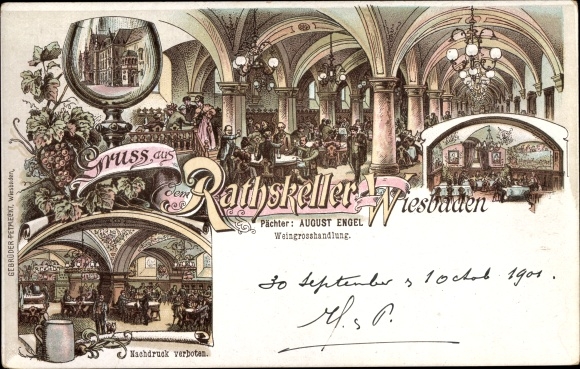 Gruss aus
dem
Rathskeller-Wiesbaden
Pächter: AUGUST ENGEL
Weingrosshandlung.
30 September & 1 Octob 1901.
H. & P.
Nachdruck verboten.
GEBRÜDER PETMECKY, Wiesbaden.